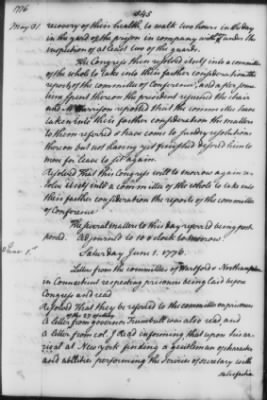 1776
345
May 31
recovery of their health, to walk two hours in the day
in the yard of the prison in company with & under the
inspection of at least two of the guards.
The Congress then resolved itself into a committee
of the whole to take into their farther consideration the
reports of the committee of Conference, and after some
time spent thereon the president resumed the chair
and Mr Harrison reported that the committee have
taken into their farther consideration the matters
to them referred & have come to sundry resolutions
thereon but not having yet finished desired him to
move for leave to sit again.
Resolved that this Congress will to morrow again re-
solve itself into a committee of the whole to take into
their farther consideration the reports of the committee
of Conference
The several matters to this day referred being post-
poned. Adjourned to 10 o'clock to morrow.
June 1st
Saturday June 1. 1776.
Letter from the committees of Hartford & Northampton
in Connecticut respecting prisoners being laid upon
Congress and read
Resolved That they be referred to the committee on prisoners
of the 27 of May
a letter from governor Trumbull was also read, and
a letter from col. J Reed informing, that upon his ar-
rival at New York finding a gentleman of character
and abilities performing the service of secretary with
satisfaction